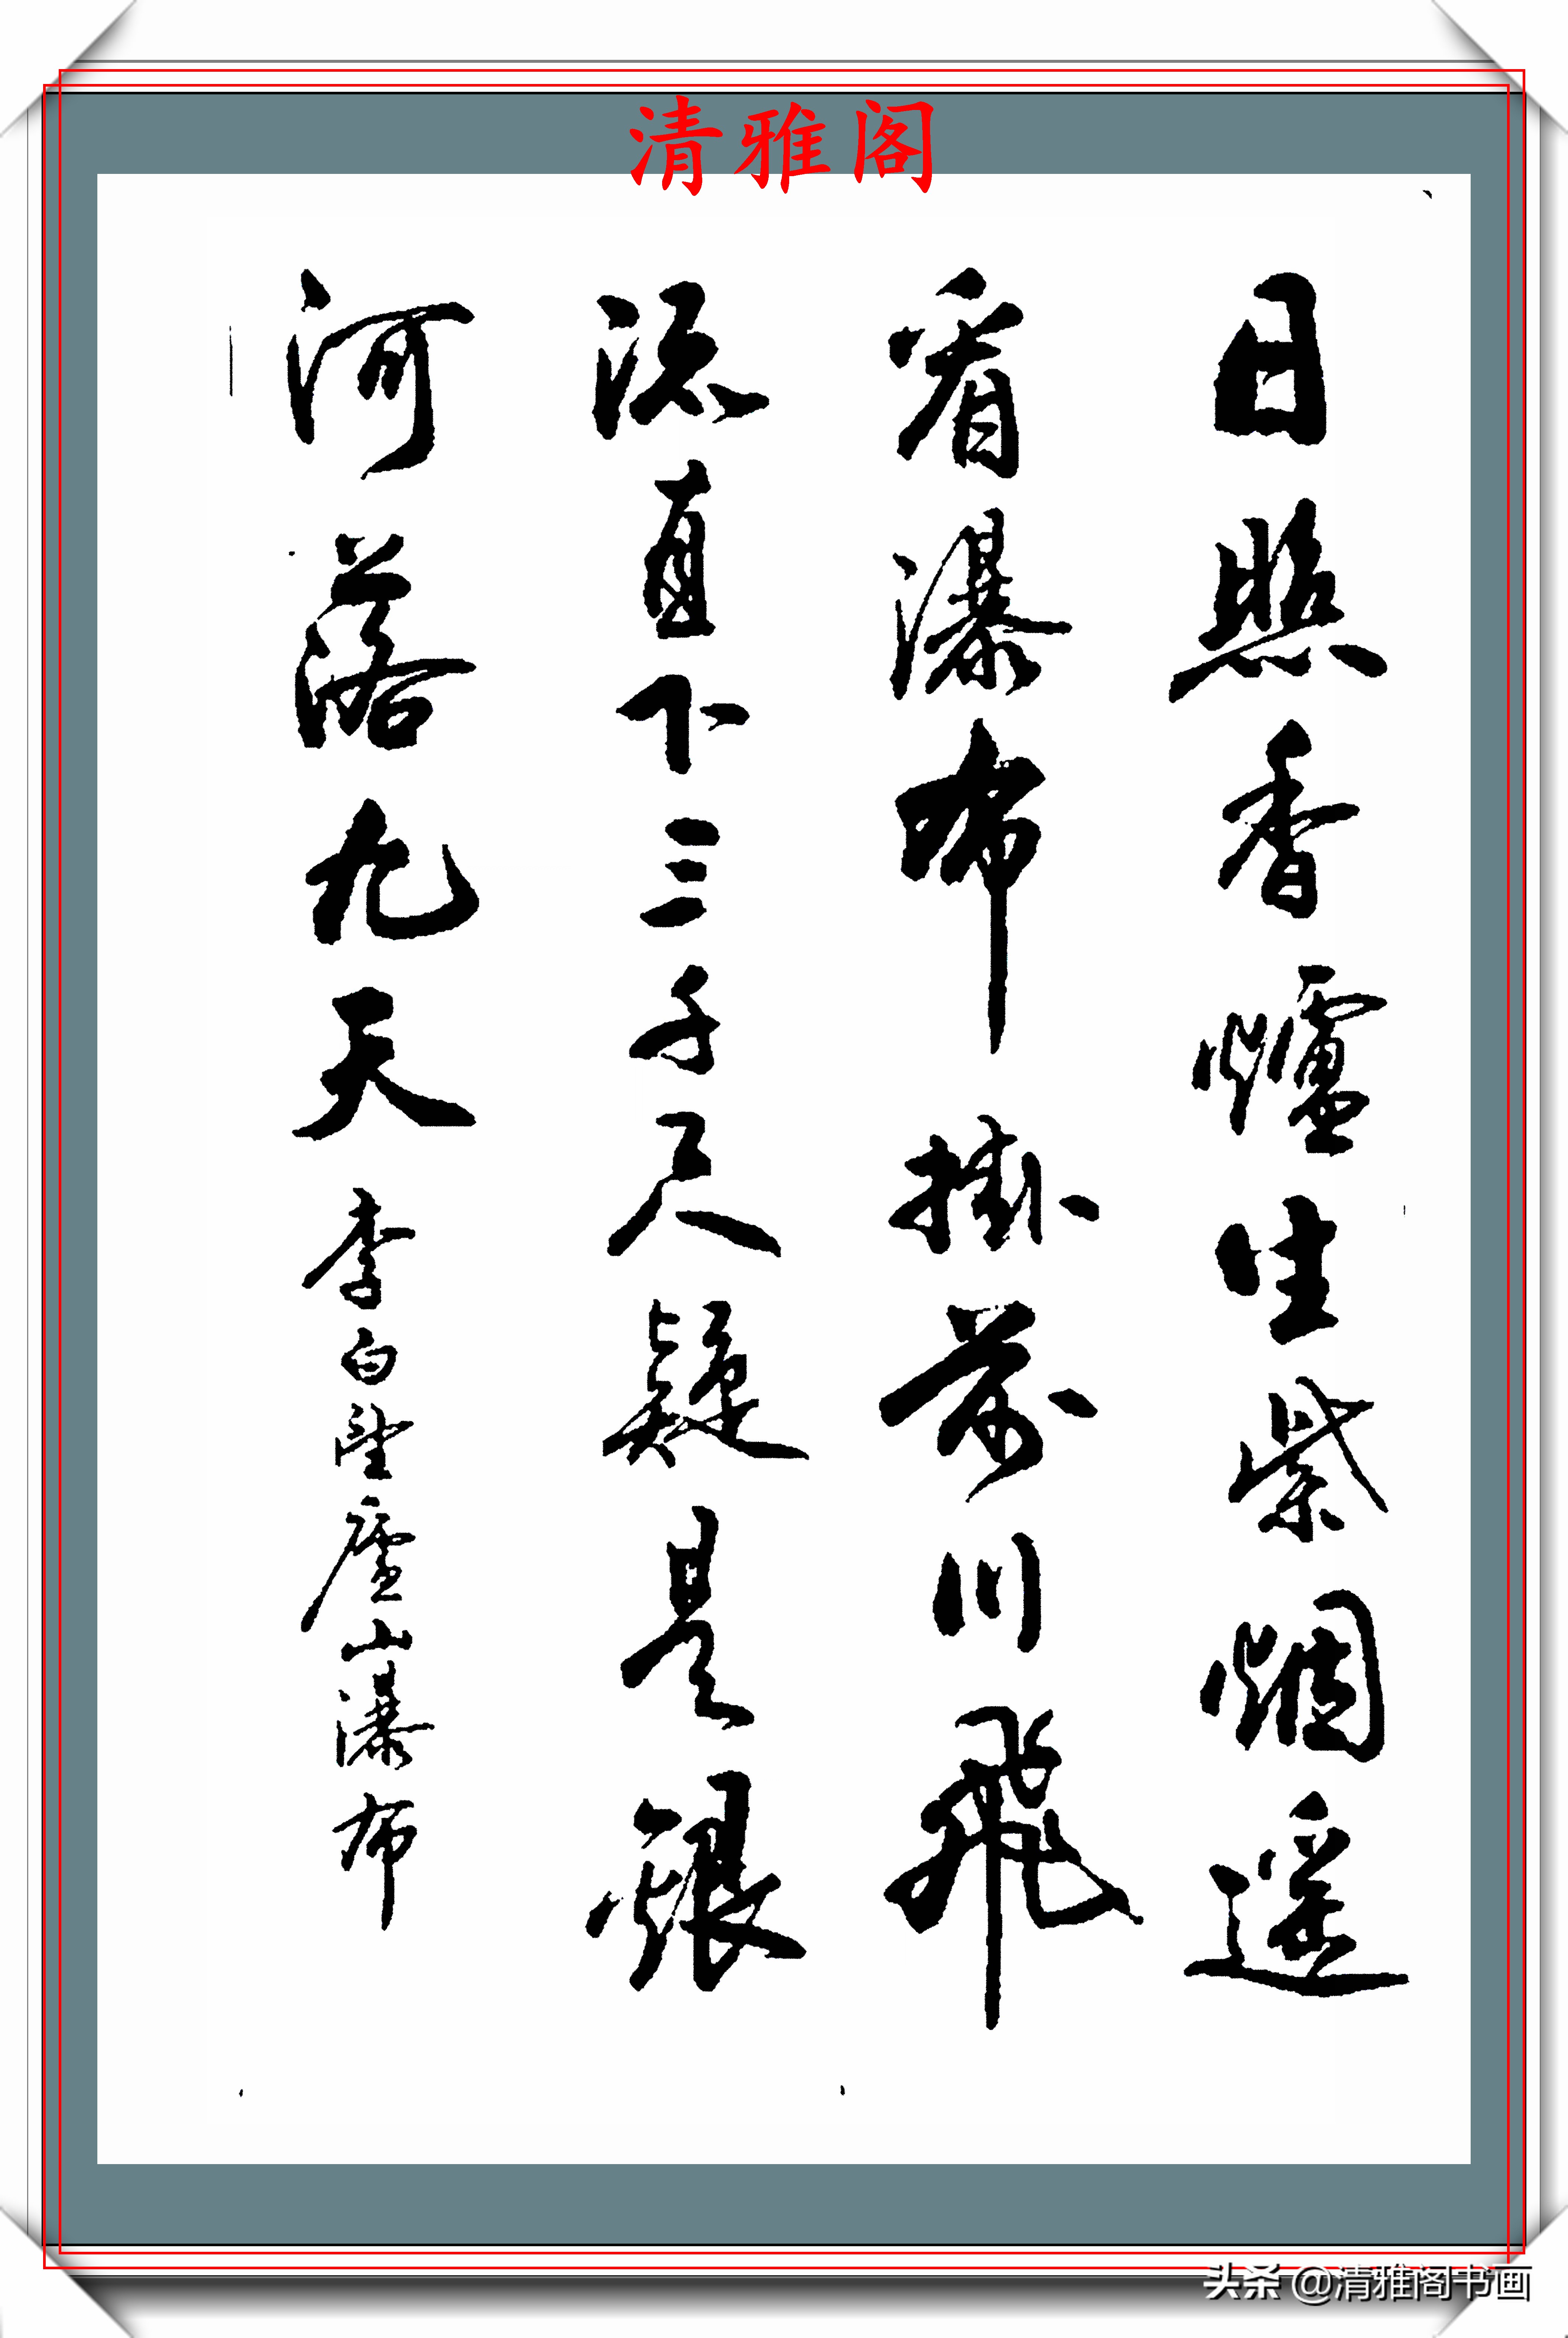 清雅阁
日照香爐生紫烟遥
看瀑布掛前川飛
流直下三千尺疑是銀
河落九天 李白望廬山瀑布
头条 @清雅阁书画